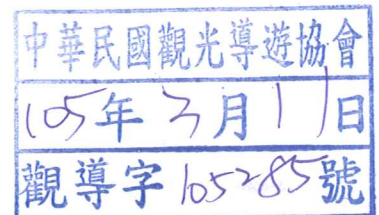 中華民國觀光導遊協會
105年3月11日
觀導字105285號